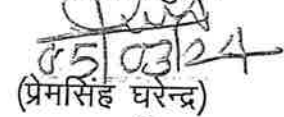 05/03/24
(प्रेमसिंह घरेन्द्र)